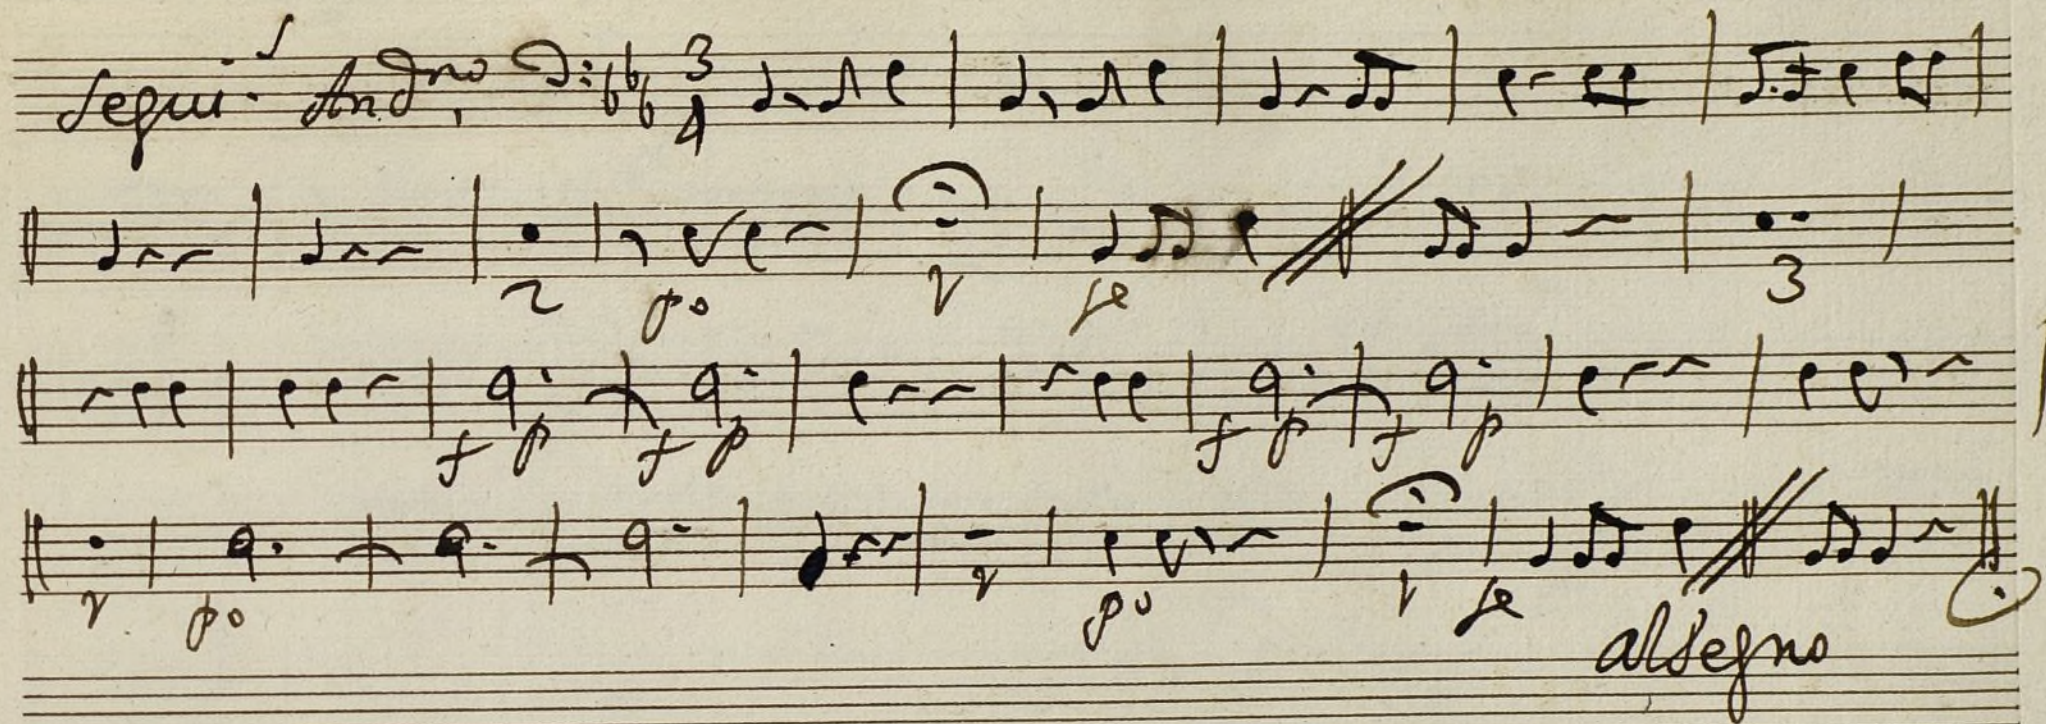 Segui. And.no 3 4
2 po fe 3
f p f p f p f p
po po fe
al Segno